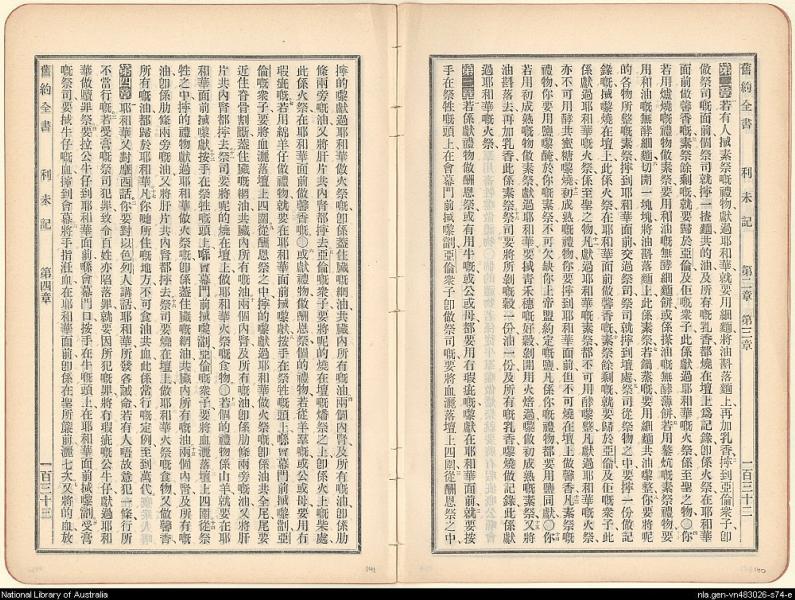 舊約全書 利未記 第二章 第三章 一百三十二
第二章 若有人搣素祭嘅禮物獻過耶和華就要用細麵將油斟落麵上再加乳香拧到亞倫衆子卽
做祭司嘅面前個祭司就拧一揸麵共的油及所有嘅乳香都燒在壇上爲記錄卽係火祭在耶和華
面前做馨香嘅素祭餘剩嘅就要歸於亞倫及佢嘅衆子此係獻過耶和華嘅火祭係至聖之物〇你
若用爐燒嘅禮物做素祭要用和油嘅無酵細麵餅或係搽油嘅無酵薄餅若用鏊炕嘅素祭禮物要
用和油嘅無酵細麵切開一塊塊將油斟落麵上此係素祭若鍋蒸嘅要用細麵共油嚟整你要將呢
的各物所整嘅素祭拧到耶和華面前交過祭司祭司就拧到壇處祭司從祭物之中要拧一份做記
錄嘅搣嚟燒在壇上此係火祭在耶和華面前做馨香嘅素祭餘剩嘅就要歸於亞倫及佢嘅衆子此
係獻過耶和華嘅火祭係至聖之物凡獻過耶和華嘅素祭都不可用酵嚟整凡獻過耶和華嘅火祭
亦不可用酵共蜜糖嚟燒初成熟嘅禮物你要拧到耶和華面前但不可燒在壇上做馨香凡素祭嘅
禮物你要用鹽嚟醃於你嘅素祭不可欠缺你上帝盟約定嘅鹽凡係你嘅禮物都要用鹽同獻〇你
若用初成熟嘅物做素祭獻過耶和華要搣靑禾穗嘅好穀剝開用火焙過嚟做初成熟嘅素祭又將
油斟落去再加乳香此係素祭祭司要將所剝嘅穀一份油一份及所有嘅乳香嚟燒做記錄此係獻
過耶和華嘅火祭
第三章 若係獻禮物嚟做酬恩祭或有用牛嘅或公或母都要用有瑕疵嘅嚟獻在耶和華面前就要按
手在祭牲嘅頭上在會幕門前搣嚟劏亞倫衆子卽做祭司嘅要將血灑落壇上四圍從酬恩祭之中
拧的嚟獻過耶和華做火祭卽係蓋住臟嘅網油共臟內所有嘅油兩個內腎及所有嘅油卽係肋
條兩旁嘅油又將肝片共內腎都拧去亞倫嘅衆子要將呢的燒在壇嘅燔祭之上卽係火上嘅柴處
此係火祭在耶和華面前做馨香嘅〇或獻禮物做酬恩祭個的禮物若從羊羣嘅或公或母要用有
瑕疵嘅若用綿羊仔做禮物就要在耶和華面前搣嚟獻按手在祭牲嘅頭上喺會幕門前搣嚟劏亞
倫嘅衆子要將血灑落壇上四圍從酬恩祭之中拧的嚟獻過耶和華做火祭卽係油共全尾尾要
近住脊骨割斷蓋住臟嘅網油共臟內所有嘅油兩個內腎及所有嘅油卽係肋條兩旁嘅油又將肝
片共內腎都拧去祭司要將呢的燒在壇上做耶和華火祭嘅食物〇若個的禮物係山羊就要在耶
和華面前搣嚟獻按手在祭牲嘅頭上喺會幕門前搣嚟劏亞倫嘅衆子要將血灑落壇上四圍從祭
牲之中拧的禮物獻過耶和華做火祭卽係蓋住臟嘅網油共臟內所有嘅油兩個內腎及所有嘅
油卽係肋條兩旁嘅油又將肝片共內腎都拧去祭司要燒在壇上做耶和華火祭嘅食物又做馨香
所有嘅油都歸於耶和華凡你哋所住嘅地方不可食油共血此係當行嘅定例至到萬代
第四章 耶和華又對摩西話你要對以色列人講話耶和華所發各誡命若有人唔故意犯一條行所
不當行嘅若受膏嘅祭司犯罪致令百姓亦陷落罪就要因所犯嘅罪將有瑕疵嘅公牛仔獻過耶和
華做贖罪祭要拉公牛仔到耶和華面前喺會幕門口按手在牛嘅頭上在耶和華面前搣嚟劏受膏
嘅祭司要搣牛仔嘅血拧到會幕將手指沾血在耶和華面前卽係在聖所簾前灑七次又將的血放
舊約全書 利未記 第四章 一百三十三
National Library of Australia
nla.gen-vn483026-s74-e